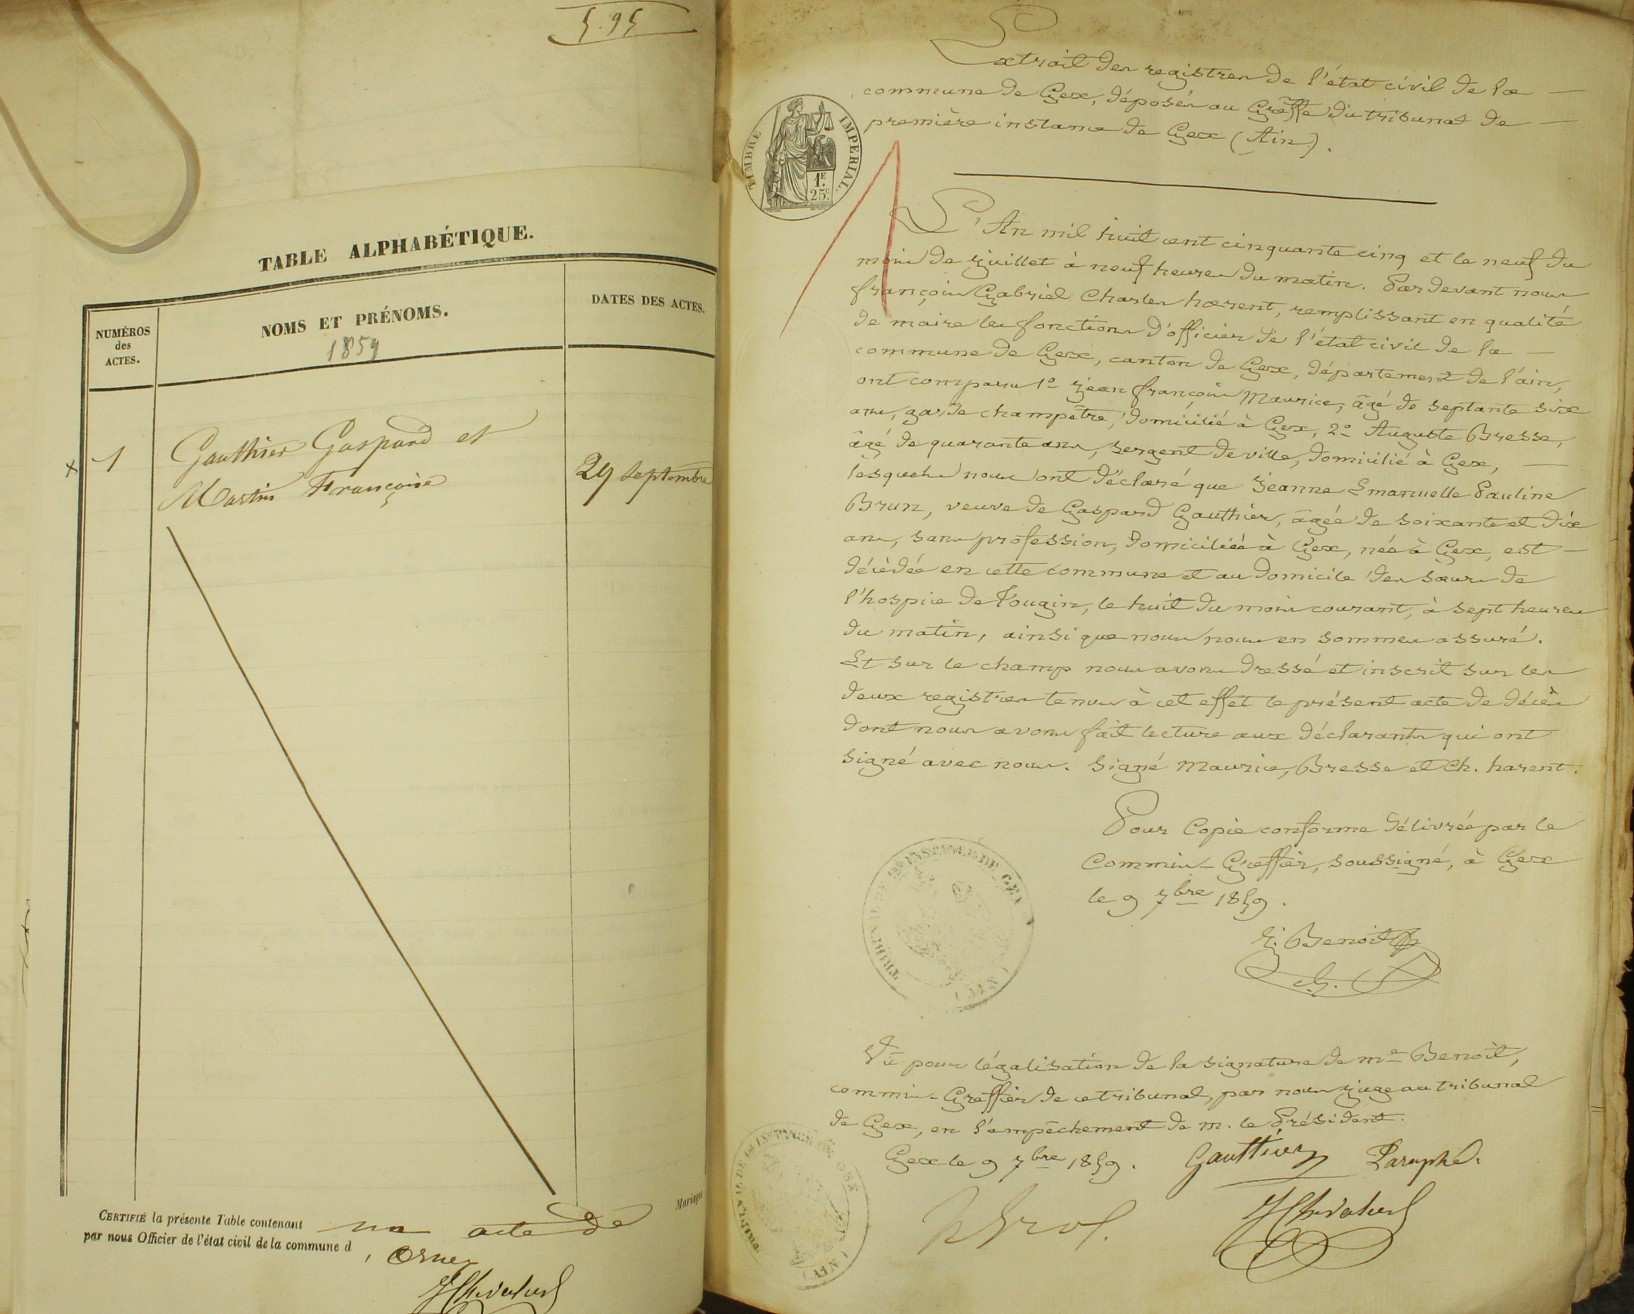 5.95
TABLE ALPHABÉTIQUE.
NUMÉROS
des
ACTES.
NOMS ET PRÉNOMS.
1859
DATES DES ACTES.
x 1
Gauthier Gaspard et
Martin Françoise
29 septembre
Mariages
CERTIFIÉ la présente Table contenant un acte de
par nous Officier de l'état civil de la commune d'Ornex
Extrait des registres de l'état civil de la
commune de Gex, déposés au Greffe du tribunal de
première instance de Gex (Ain).
TIMBRE IMPERIAL.
1F.
25C.
L'An mil huit cent cinquante cinq et le neuf du
mois de Juillet à neuf heures du matin. Par devant nous
françois Gabriel Charles harent, remplissant en qualité
de maire les fonctions d'officier de l'état civil de la
commune de Gex, canton de Gex, département de l'ain,
ont comparu 1° Jean françois Maurice, âgé de septante six
ans, garde champêtre, domicilié à Gex, 2° Auguste Bresse,
âgé de quarante ans, sergent de ville, domicilié à Gex,
lesquels nous ont déclaré que Jeanne Emanuelle Pauline
Brun, veuve de Gaspard Gauthier, âgée de soixante et dix
ans, sans profession, domiciliée à Gex, née à Gex, est
décédée en cette commune et au domicile des sœurs de
l'hospice de Tougin, le huit du mois courant, à sept heures
du matin, ainsi que nous nous en sommes assuré.
Et sur le champ nous avons dressé et inscrit sur les
deux registres tenus à cet effet le présent acte de décès
dont nous avons fait lecture aux déclarants qui ont
signé avec nous. Signé Maurice, Bresse et Ch. harent.
Pour Copie conforme délivrée par le
Commis-Greffier, soussigné, à Gex
le 9 7bre 1859.
Benoit
TRIBUNAL DE 1ère INSTANCE DE GEX
(AIN)
Vu pour légalisation de la signature de me Benoit,
commis-Greffier de ce tribunal, par nous juge au tribunal
de Gex, en l'empêchement de m. le Président.
Gex le 9 7bre 1859.
Gauthier Paraphé.
TRIBUNAL DE 1ère INSTANCE DE GEX
(AIN)